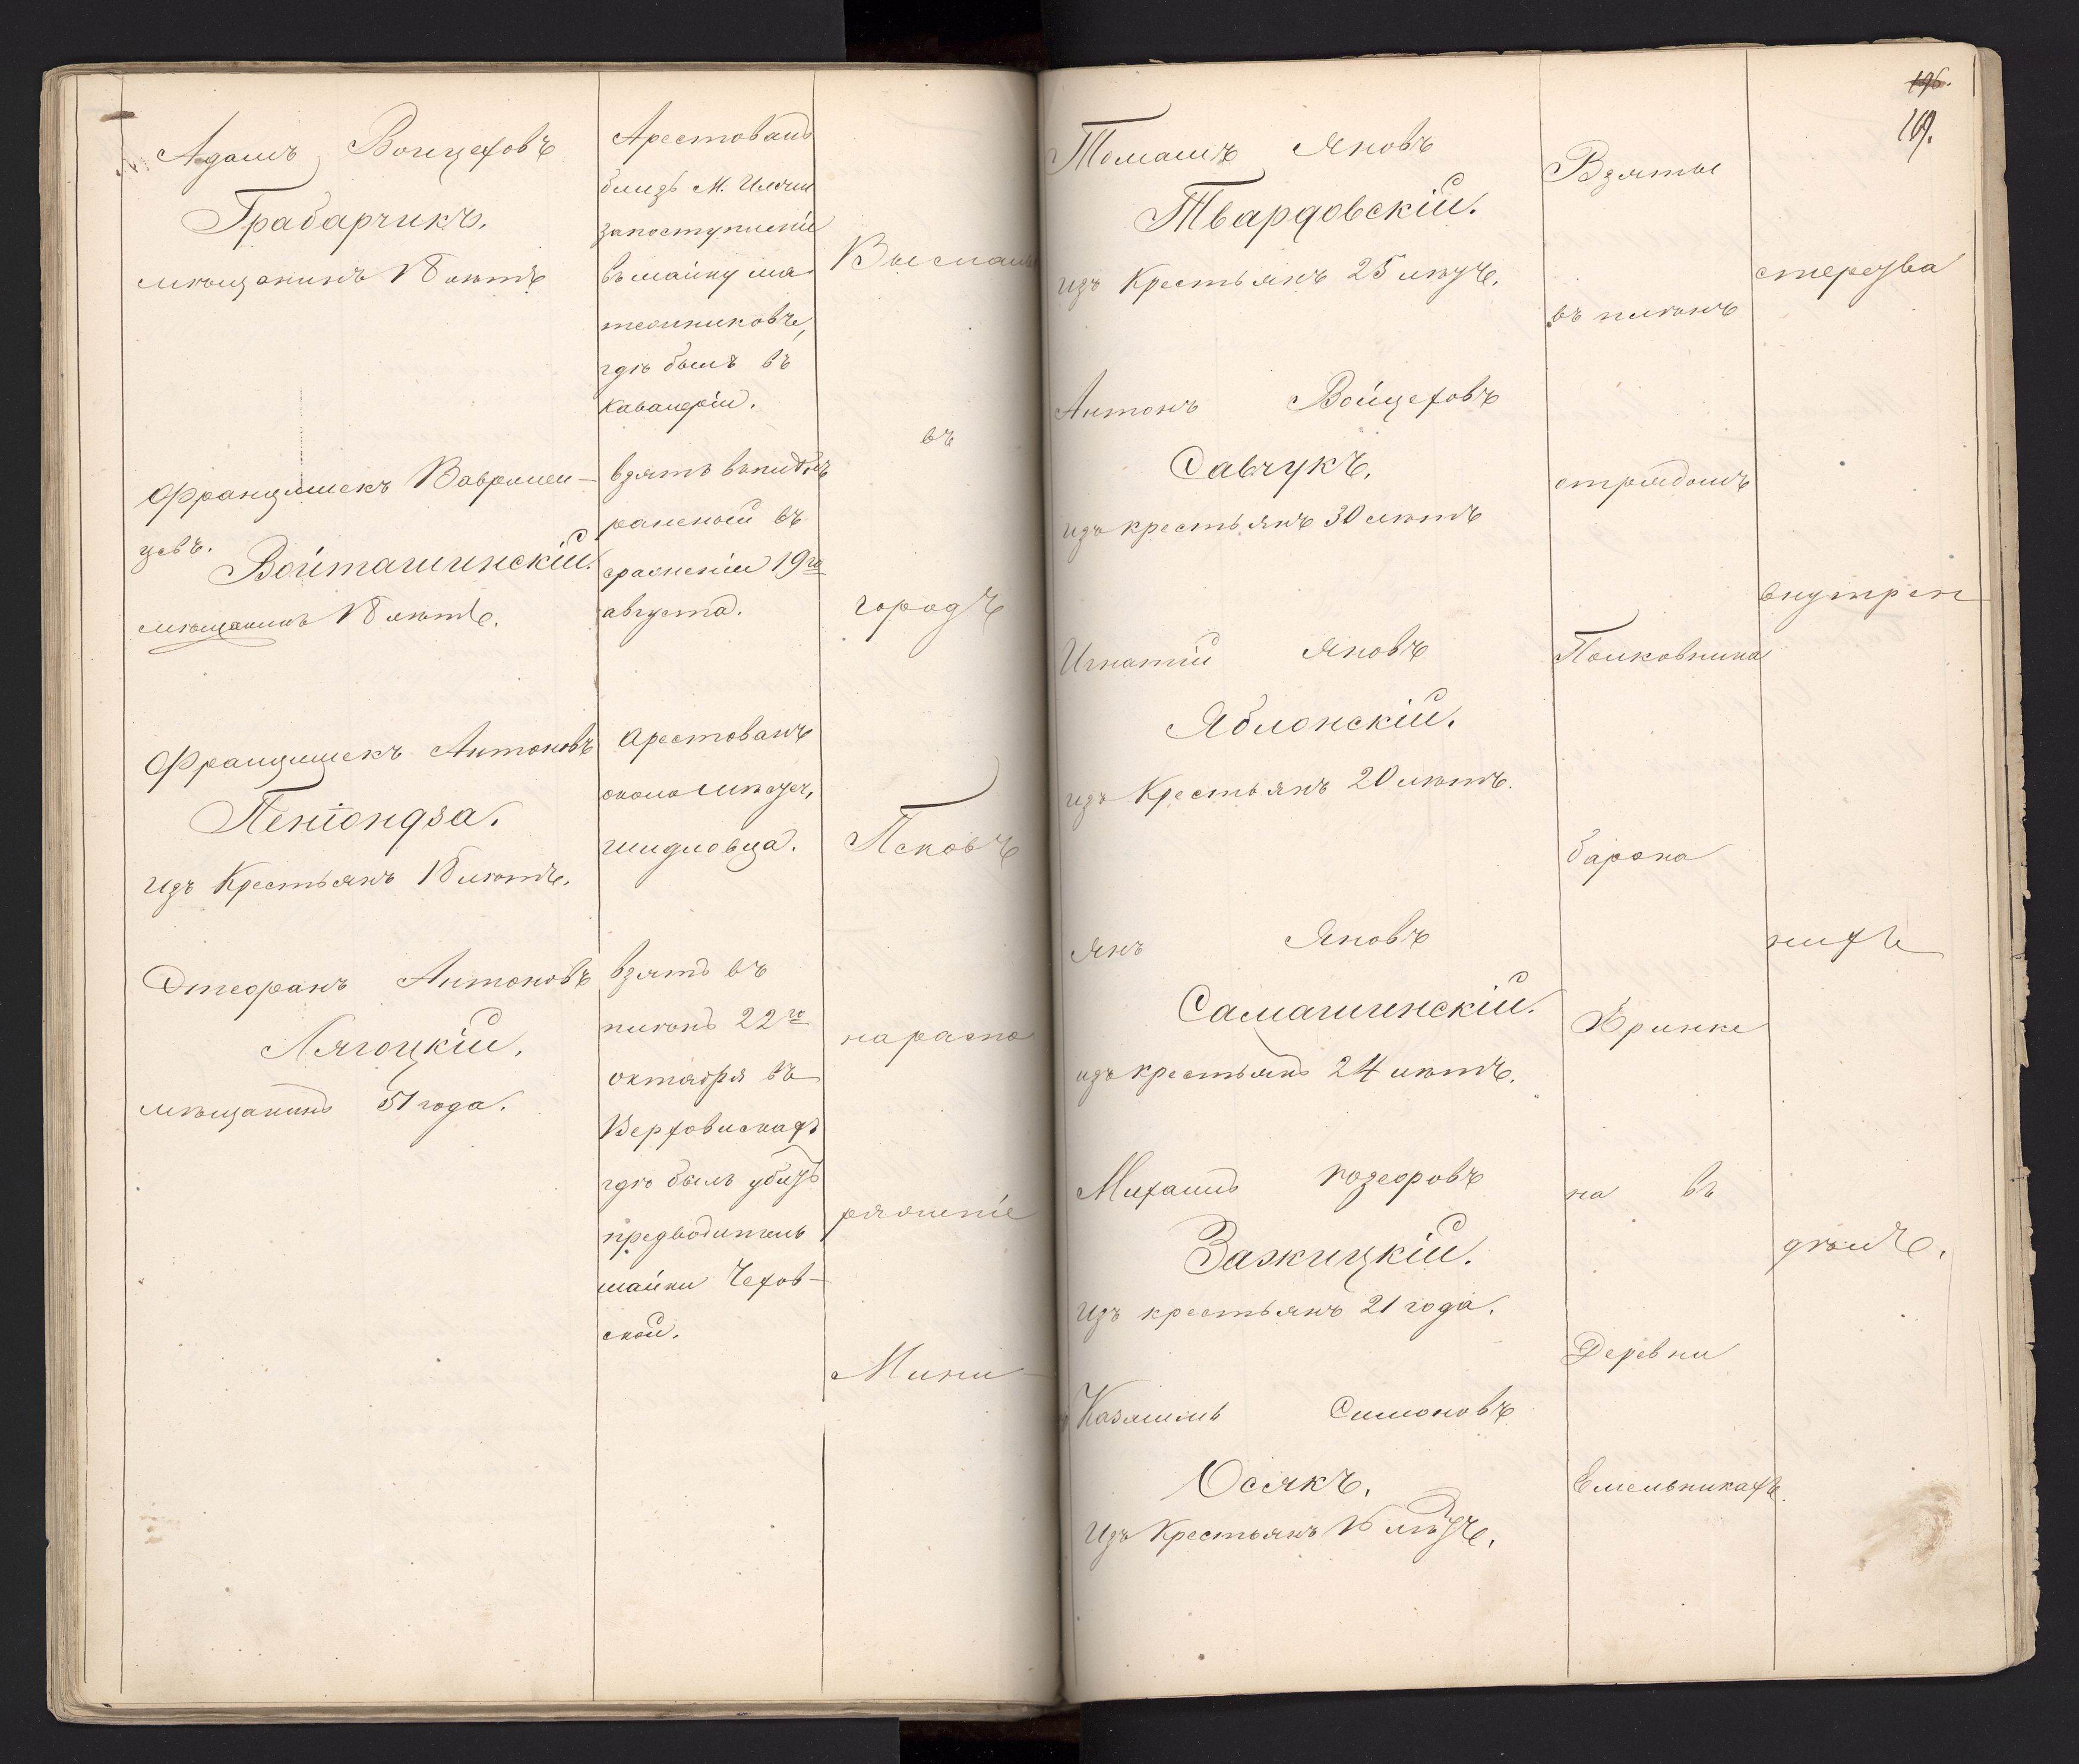 Адамъ Войцеховъ
Грабарчикъ.
мѣщанинъ 18 лѣтъ
Францишекъ Вавржен-
цовъ.
Войташинскій.
мѣщанинъ 18 лѣтъ.
Францишекъ Антоновъ
Пеніондза.
изъ Крестьянъ 18 лѣтъ.
Стефанъ Антоновъ
Лягоцкій.
мѣщанинъ 51 года.
Арестованъ
близь М. Илжи
запоступленіе
въ шайку мя
тежниковъ,
гдѣ былъ въ
кавалеріи.
взятъ въ плѣнъ
раненый въ
сраженіи 19го
августа.
Арестованъ
около мѣстеч.
шидловца.
взятъ въ
плѣнъ 22го
октября въ
Верховискахъ
гдѣ былъ убитъ
предводитель
шайки Чехов-
ской.
Высланы
въ
городъ
Псковъ
на распо
ряженіе
Мини-
196.
169.
Томашъ Яновъ
Твардовскій.
изъ Крестьянъ 25 лѣтъ.
Антонъ Войцеховъ
Савчукъ.
изъ крестьянъ 30 лѣтъ
Игнатій Яновъ
Яблонскій.
изъ Крестьянъ 20 лѣтъ.
Янъ Яновъ
Самашинскій.
изъ крестьянъ 24 лѣтъ.
Михаилъ Іозефовъ
Зажицкій.
изъ крестьянъ 21 года.
Казимиръ Симоновъ
Осякъ.
Изъ Крестьянъ 16 лѣтъ.
Взяты
въ плѣнъ
отрядомъ
Полковника
барона
Бринке
на въ
Деревни
Емельникахъ.
стерства
внутрен
нихъ
дѣлъ.